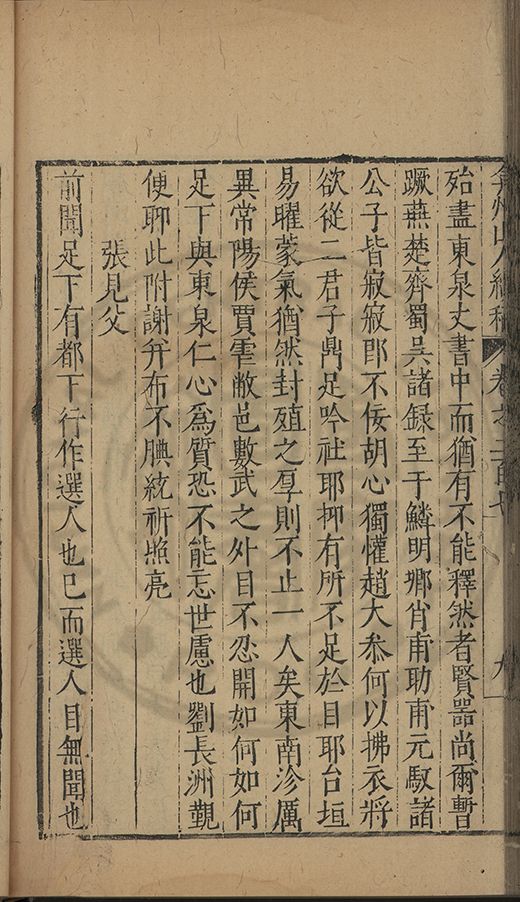 弇州山人續稿 卷之二百七 九
殆盡東泉丈書中而猶有不能釋然者賢器尚爾暫
蹶燕楚齊蜀吳諸録至于鱗明鄉肖甫助甫元馭諸
公子皆寂寂郎不佞胡心獨懽趙大叅何以拂衣將
欲從二君子鼎足吟社耶抑有所不足於目耶台垣
易曜蒙氣猶然封殖之厚則不止一人矣東南沴厲
異常陽侯賈雩敝邑數武之外目不忍開如何如何
足下與東泉仁心爲質恐不能忘世慮也劉長洲覲
便聊此附謝弁布不腆統祈炤亮
張見父
前聞足下有都下行作選人也已而選人目無聞也